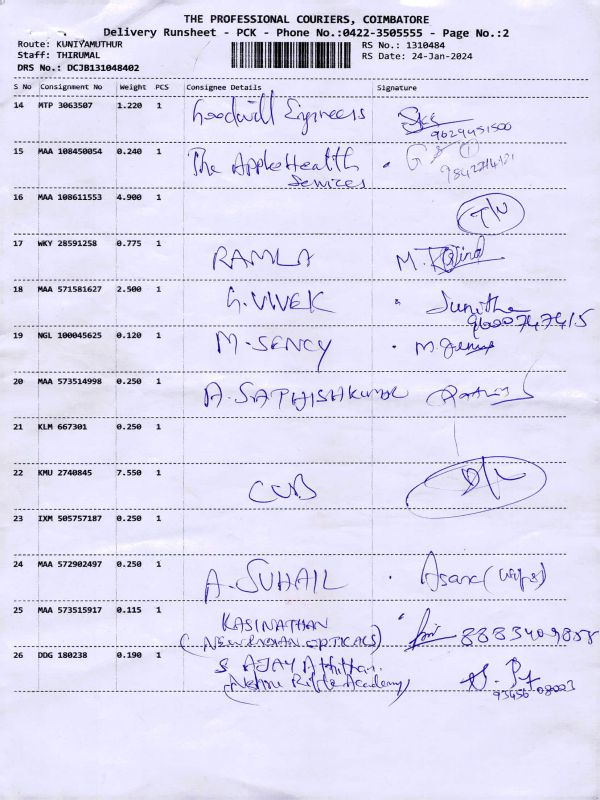 THE PROFESSIONAL COURIERS, COIMBATORE
Delivery Runsheet - PCK - Phone No.:0422-3505555 - Page No.:2
Route: KUNIYAMUTHUR RS No.: 1310484
Staff: THIRUMAL RS Date: 24-Jan-2024
DRS No.: DCJB131048402
S No Consignment No Weight PCS Consignee Details Signature
14 MTP 3063507 1.220 1 Goodwill Engineers
9629451500
15 MAA 108450054 0.240 1 The AppleHealth
Services
16 MAA 108611553 4.900 1
17 WKY 28591258 0.775 1 RAMLA M.
18 MAA 571581627 2.500 1 G. VIVEK Sunitha
9600747415
19 NGL 100045625 0.120 1 M. SENCY M.
20 MAA 573514998 0.250 1 A. SATHISHKUMAR
21 KLM 667301 0.250 1
22 KMU 2740845 7.550 1 CUB D/L
23 IXM 505757187 0.250 1
24 MAA 572902497 0.250 1 A. SUHAIL (wife)
25 MAA 573515917 0.115 1 KASINATHAN
(NEW INDIAN OPTICALS) 8883409858
26 DDG 180238 0.190 1 S AJAY Athithan.
(Nehru Rifle Academy) 93456 08003